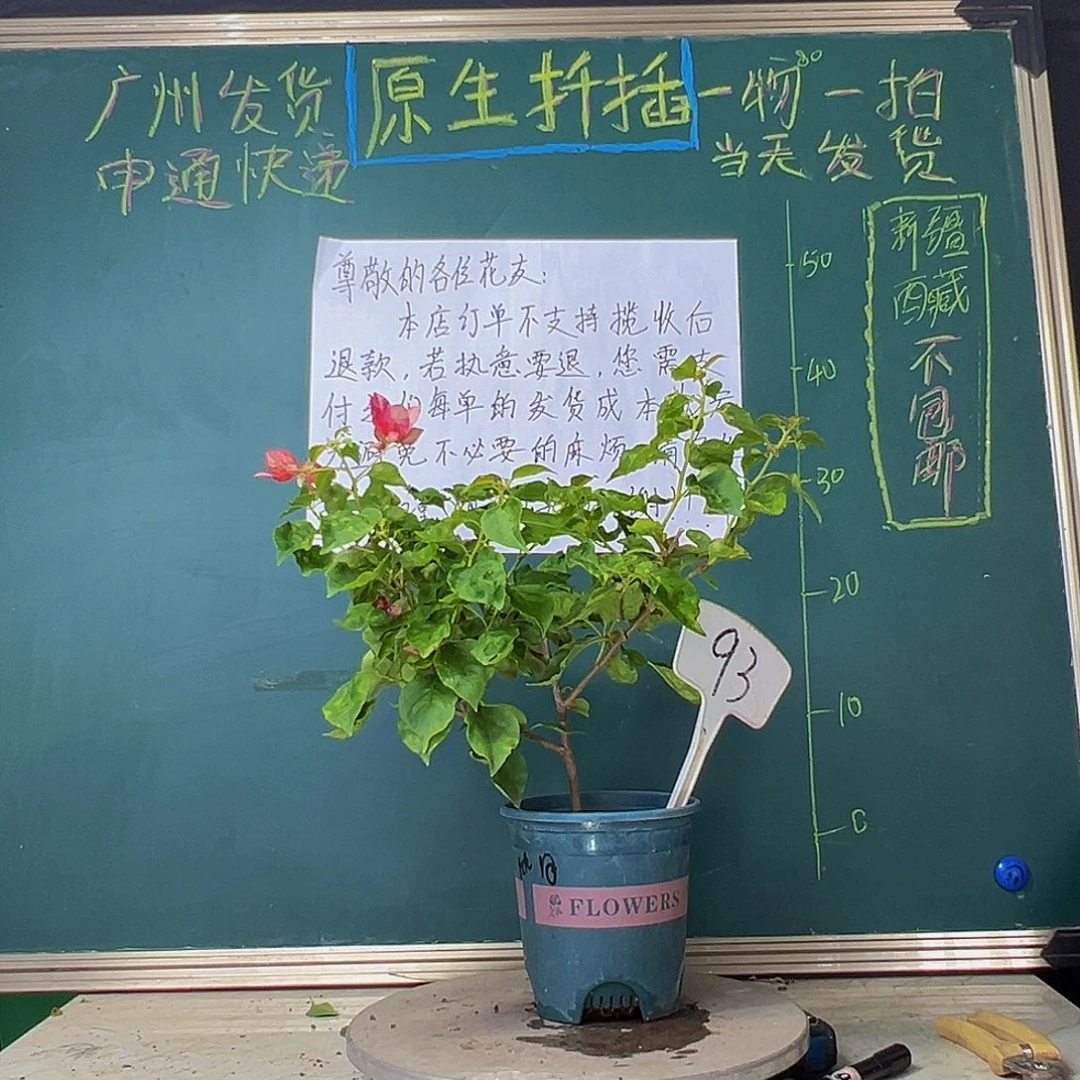 广州发货
申通快递
原生扦插
一物一拍
当天发货
新疆
西藏
不
包
邮
尊敬的各位花友:
本店订单不支持揽收后
退款,若执意要退,您需支
付 每单的发货成本
避免不必要的麻烦
50
40
30
20
10
0
93
FLOWERS